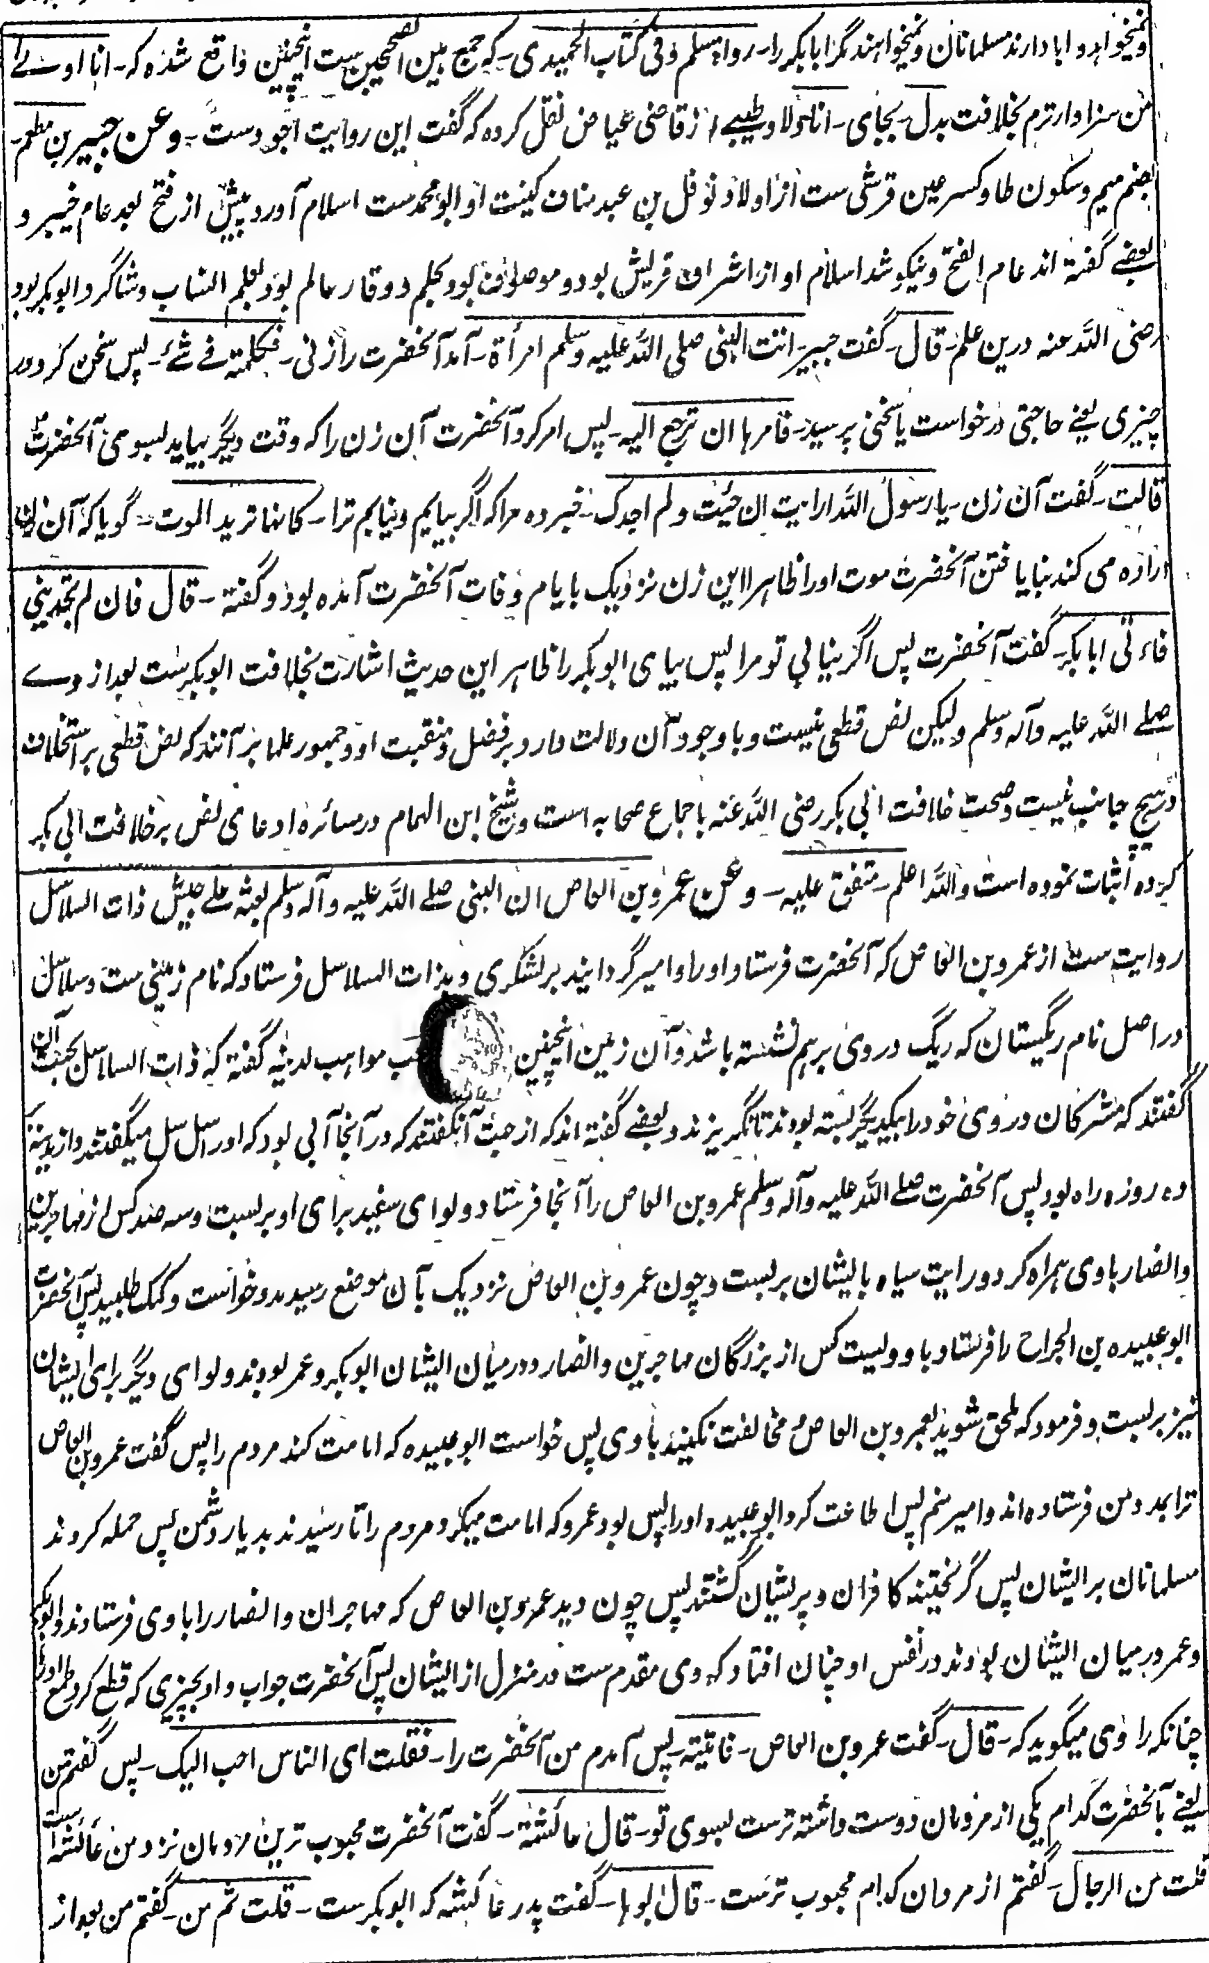 ونمیخواهد و ابا دارند مسلمانان ونمیخواهند مگر ابابکر را۔ رواه مسلم وفی کتاب الحمیدی۔ که جمع بین الصحیحین ست اینچنین واقع شده که۔ انا اولے
من سزاوارترم بخلافت بدل۔ بجای۔ انا ولا وطیبے از قاضی عیاض نقل کرده که گفت این روایت اجود ست۔ وعن جبیر بن مطعم۔
بضم میم وسکون طا وکسر عین قرشی ست از اولاد نوفل بن عبد مناف کنیت او ابو محمد ست اسلام آورد پیش از فتح بعد عام خیبر و
بعضے گفته اند عام الفتح ونیکو شد اسلام او از اشراف قریش بود و موصوف بود بحلم ووقار عالم بود بعلم انساب وشاگرد ابوبکر بود
رضی الله عنه درین علم۔ قال۔ گفت جبیر۔ اتت النبی صلی الله علیه وسلم امرأة۔ آمد آنحضرت را زنی۔ فکلمته فے شئ۔ پس سخن کرد در
چیزی یعنے حاجتی درخواست یا سخنی پرسید۔ فامرها ان ترجع الیه۔ پس امر کرد آنحضرت آن زن را که وقت دیگر بیاید بسوی آنحضرت
قالت۔ گفت آن زن۔ یا رسول الله ارایت ان جئت ولم اجدک۔ خبر ده مرا که اگر بیایم ونیابم ترا۔ کانها ترید الموت۔ گویا که آن زن
اراده می کند بنا یافتن آنحضرت موت او را ظاهرا این زن نزدیک بایام وفات آنحضرت آمده بود وگفته۔ قال فان لم تجدینی
فائتی ابابکر۔ گفت آنحضرت پس اگر نیابی تو مرا پس بیای ابوبکر را ظاهر این حدیث اشارت بخلافت ابوبکر ست بعد از وے
صلے الله علیه وآله وسلم ولیکن نص قطعی نیست وباوجود آن دلالت دارد بر فضل ومنقبت او وجمهور علما بر آنند که نص قطعی بر استخلاف
در هیچ جانب نیست وصحت خلافت ابی بکر رضی الله عنه باجماع صحابه است وشیخ ابن الهمام در مسائره ادعای نص بر خلافت ابی بکر
کرده اثبات نموده است والله اعلم۔ متفق علیه۔ وعن عمرو بن العاص ان النبی صلے الله علیه وآله وسلم بعثه علے جیش ذات السلاسل
روایت ست از عمرو بن العاص که آنحضرت فرستاد او را وامیر گردانید بر لشکری وبذات السلاسل فرستاد که نام زمینی ست وسلاسل
در اصل نام ریگستان که ریگ در وی بر هم نشسته باشد وآن زمین اینچنین مواهب لدنیه گفته که ذات السلاسل بجهت آن
گفتند که مشرکان در وی خود را بیکدیگر بسته بودند تا نگریزند وبعضے گفته اند که از جهت آن گفتند که در آنجا آبی بود که او را سل سل میگفتند واز مدینه
ده روزه راه بود پس آنحضرت صلے الله علیه وآله وسلم عمرو بن العاص را آنجا فرستاد ولوای سفید برای او بر بست وسه صد کس از مهاجرین
وانصار با وی همراه کرد ورایت سیاه با ایشان بربست وچون عمرو بن العاص نزدیک بآن موضع رسید مدد خواست وکمک طلبید پس آنحضرت
ابو عبیده بن الجراح را فرستاد با دویست کس از بزرگان مهاجرین وانصار ودرمیان ایشان ابوبکر وعمر بودند ولوای دیگر برای ایشان
نیز بربست وفرمود که ملحق شوید بعمرو بن العاص ومخالفت نکنید با وی پس خواست ابو عبیده که امامت کند مردم را پس گفت عمرو بن العاص
ترا بمدد من فرستاده اند وامیر منم پس اطاعت کرد ابو عبیده او را پس بود عمرو که امامت میکرد مردم را تا رسیدند بدیار دشمن پس حمله کردند
مسلمانان بر ایشان پس گریختند کافران وپریشان گشتند پس چون دید عمرو بن العاص که مهاجران وانصار را با وی فرستادند وابوبکر
وعمر درمیان ایشان بودند در نفس او چنان افتاد که وی مقدم ست در منزل از ایشان پس آنحضرت جواب داد بچیزی که قطع کرد طمع او را
چنانکه راوی میگوید که۔ قال۔ گفت عمرو بن العاص۔ فاتیته۔ پس آمدم من آنحضرت را۔ فقلت ای الناس احب الیک۔ پس گفتم من
یعنے بآنحضرت کدام یکی از مردمان دوست داشته ترست بسوی تو۔ قال عائشة۔ گفت آنحضرت محبوب ترین مردمان نزد من عائشه است
قلت من الرجال۔ گفتم از مردان کدام محبوب ترست۔ قال ابوها۔ گفت پدر عائشه که ابوبکر ست۔ قلت ثم من۔ گفتم من بعد از